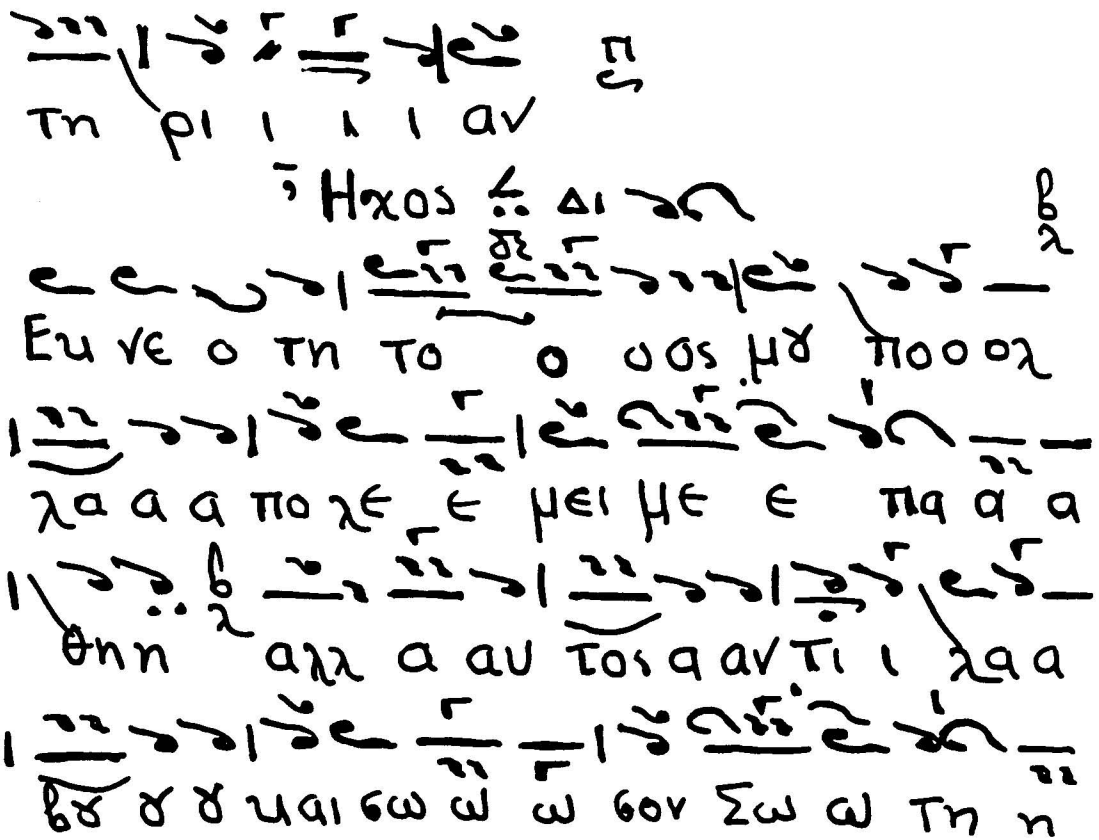 τη ρι ι ι ι αν
Ηχος Δι
Εκ νε ο τη το ο ο ος μȣ πο ο ολ
λα α α α πο λε ε μει με ε πα α α
θη η αλλ α αυ τος α αν τι ι λα α
βȣ ȣ ȣ και σω ω ω σον Σω ω τη η